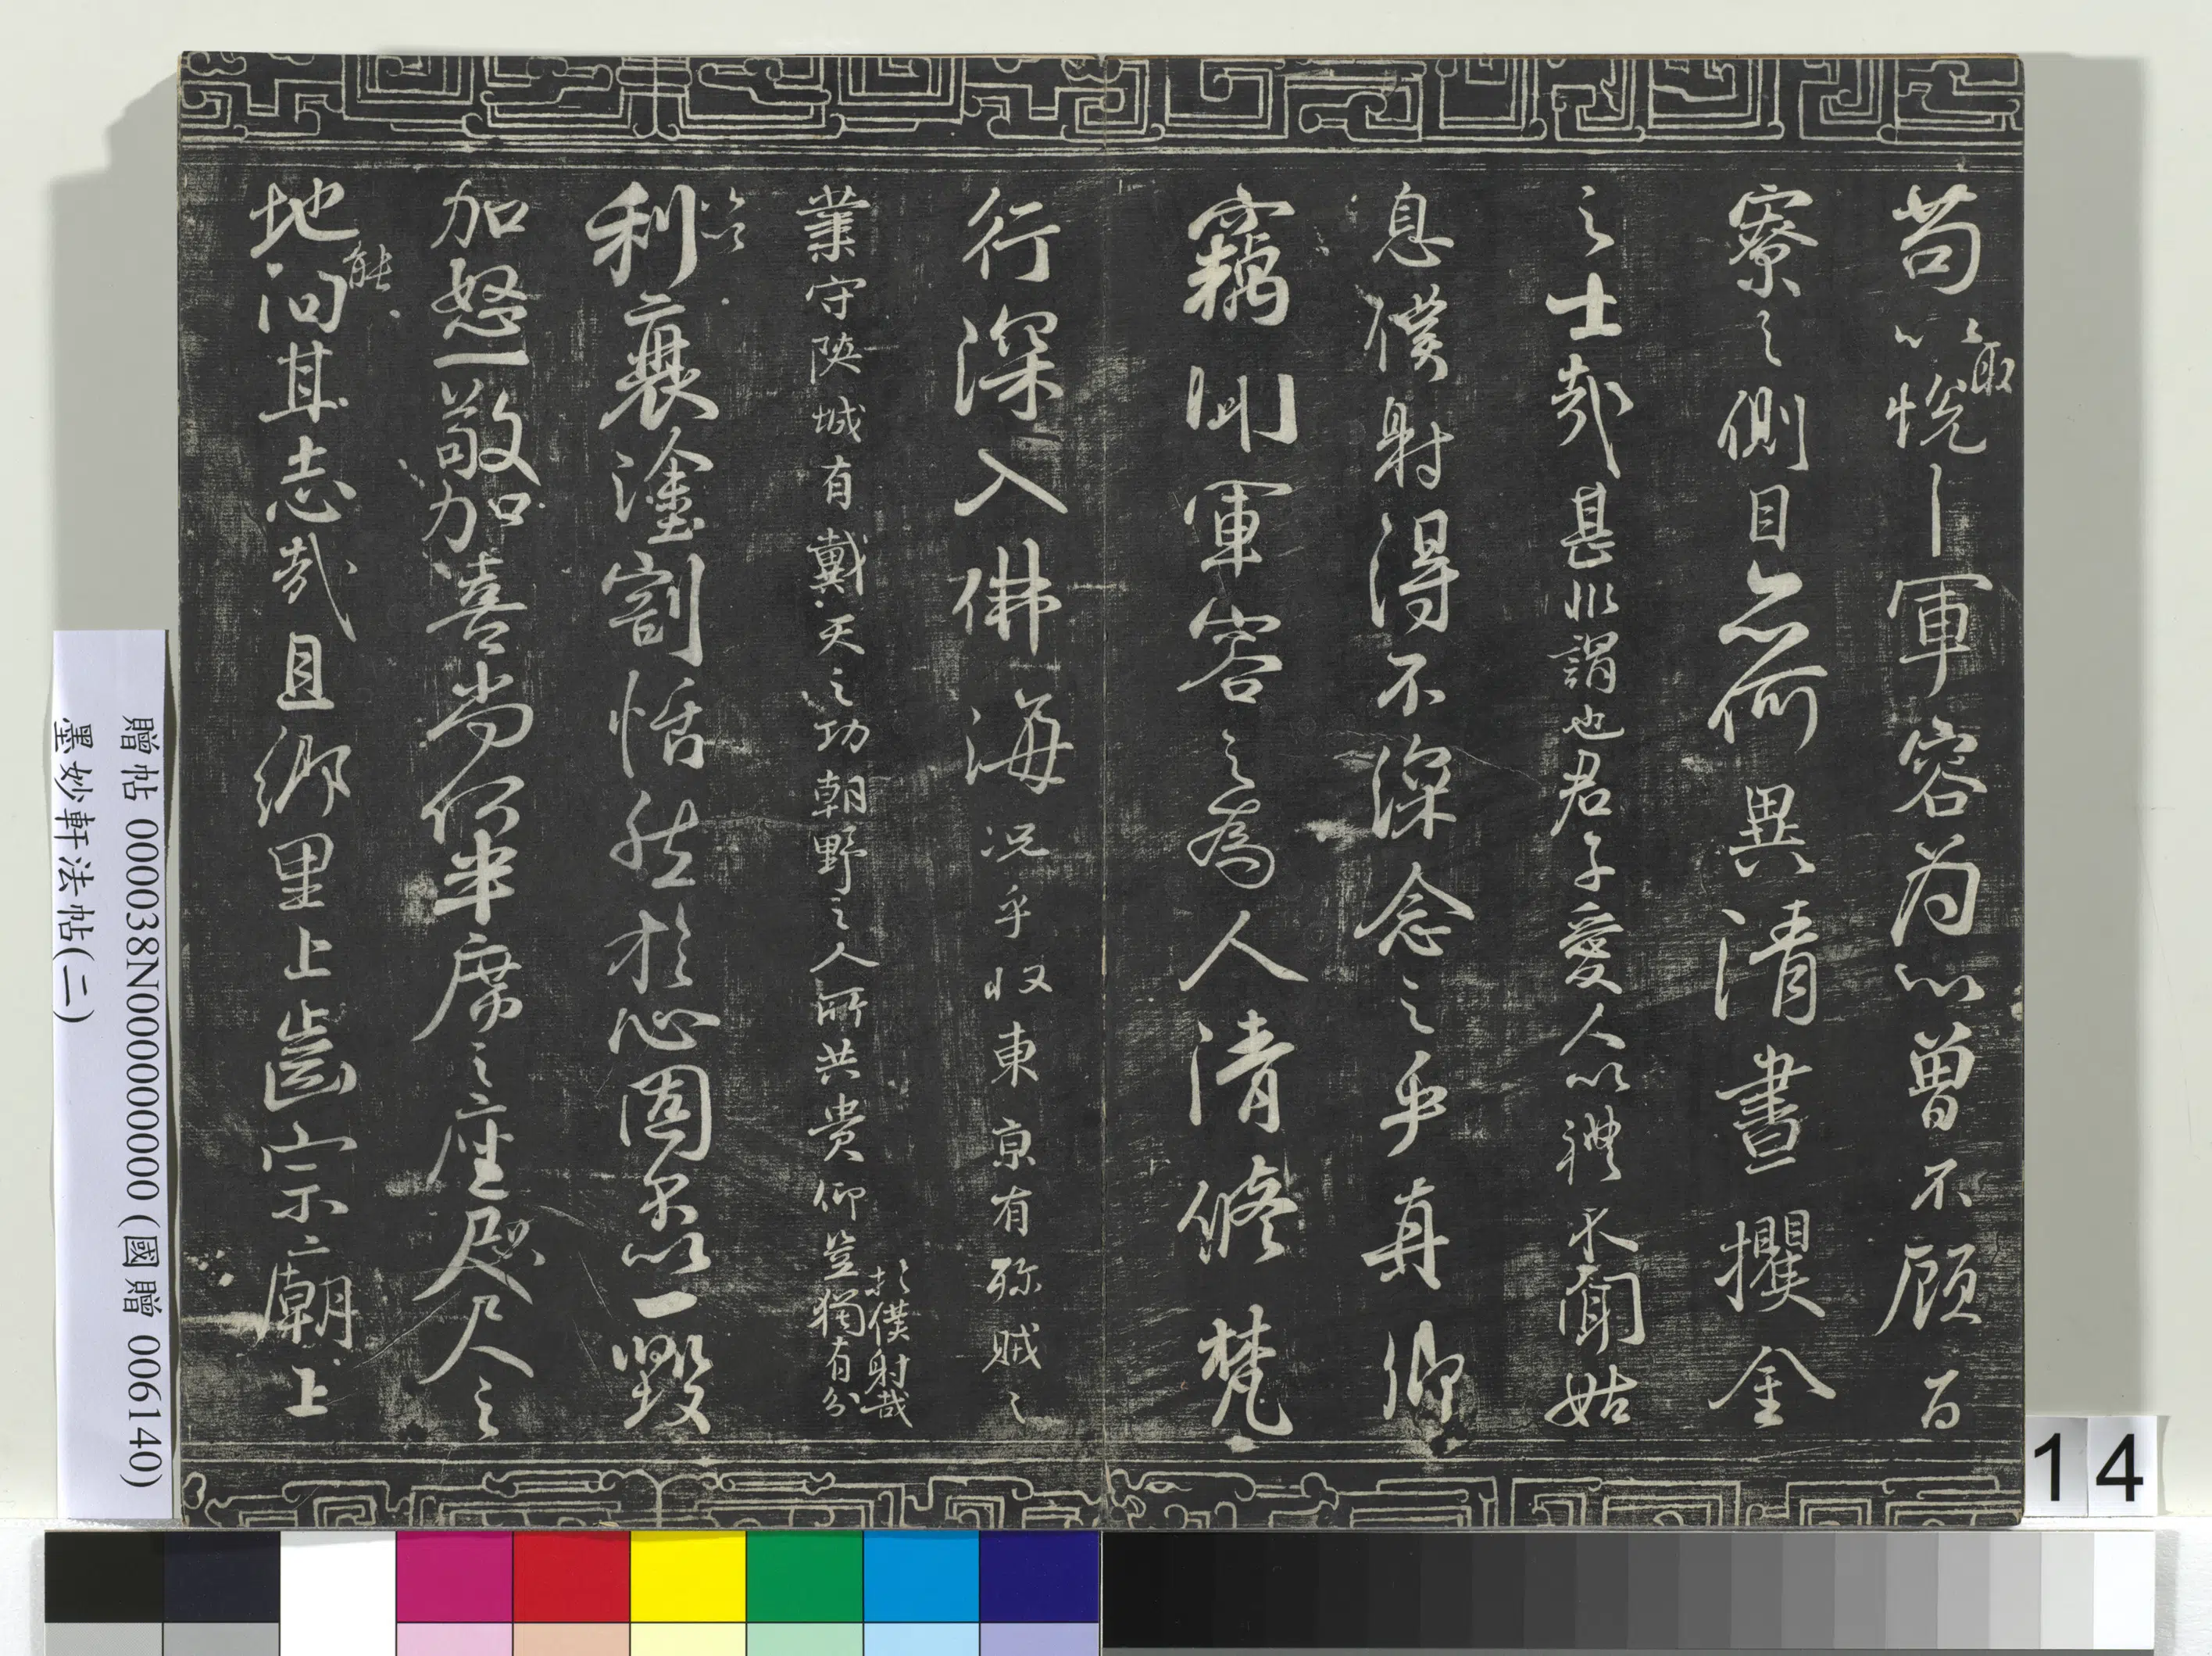 苟以取悅軍容为心曾不顧百
寮之側目亦何異清晝攫金
之士哉甚非謂也君子愛人以禮不聞姑
息僕射得不深念之乎真卿
竊聞軍容之為人清修梵
行深入佛海況乎收東京有殄賊之
業守陝城有戴天之功朝野之人所共貴仰豈獨有分於僕射哉
加以利衰塗割恬然於心固不以一毀
加怒一敬加喜尚何半席之座咫尺之
地能汩其志哉且鄉里上齒宗廟上
贈帖 000038N000000000 (國贈 006140)
墨妙軒法帖(二)
14